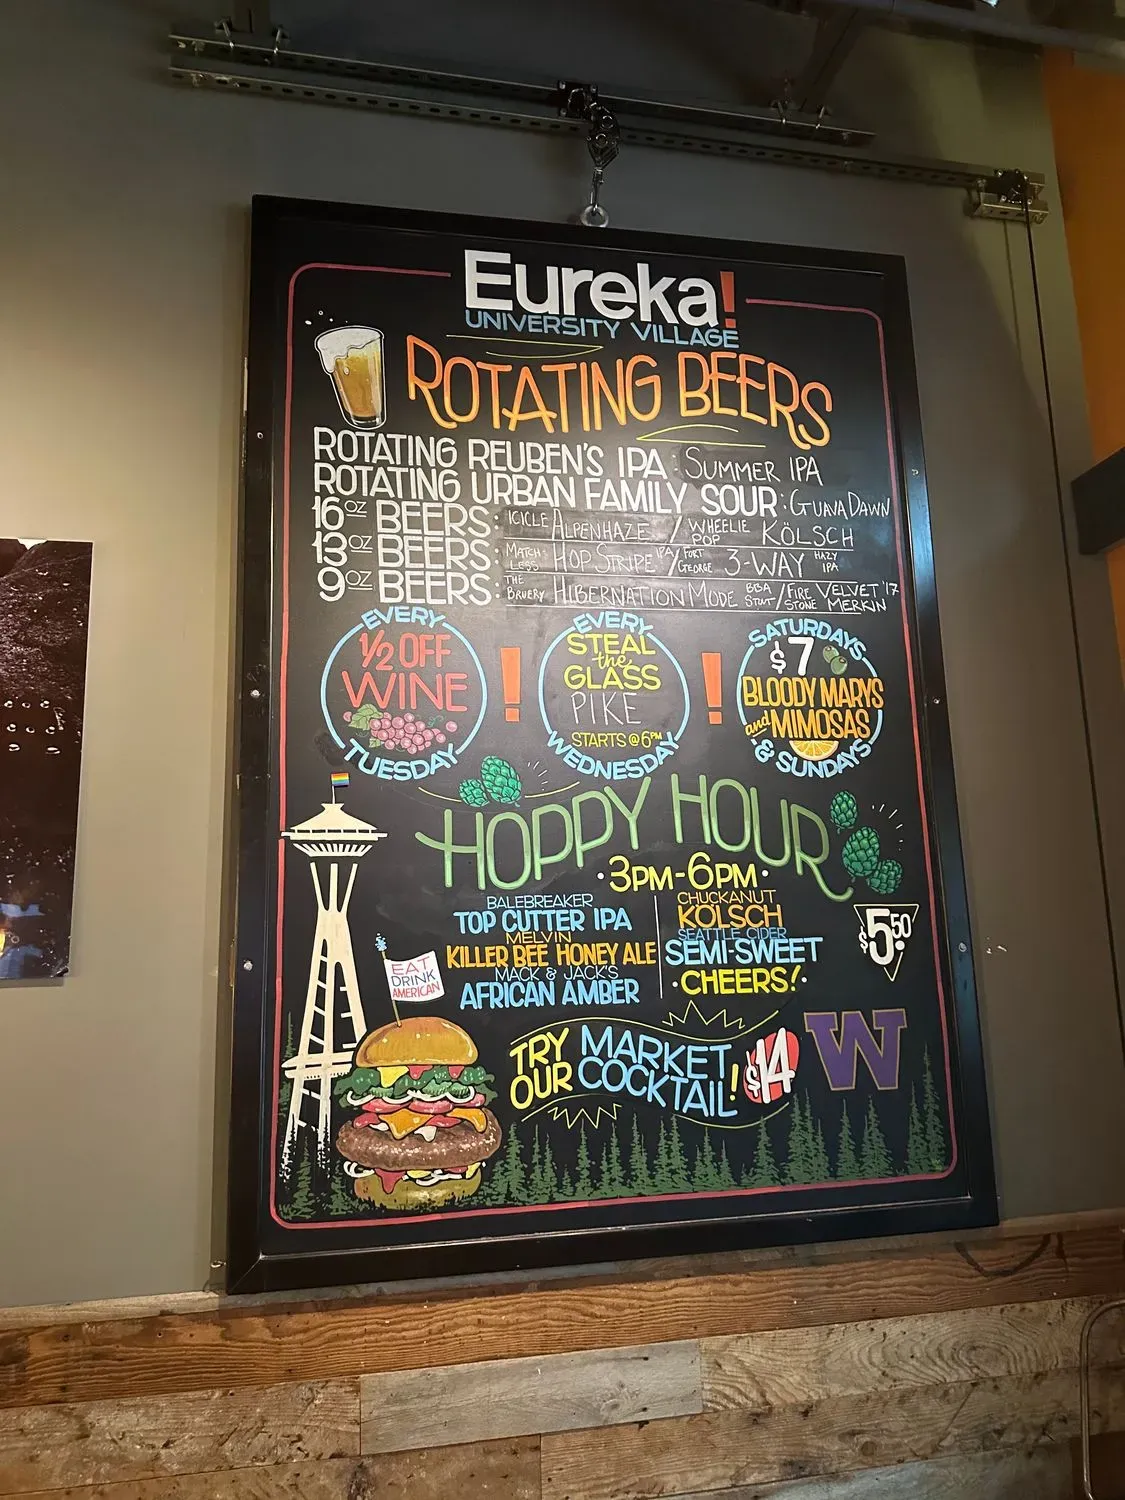 Eureka!
UNIVERSITY VILLAGE
ROTATING BEERS
ROTATING REUBEN'S IPA: SUMMER IPA
ROTATING URBAN FAMILY SOUR: GUAVA DAWN
16 OZ BEERS: ICICLE ALPENHAZE / WHEELIE POP KÖLSCH
13 OZ BEERS: MATCHLESS HOP STRIPE IPA / FORT GEORGE 3-WAY HAZY IPA
9 OZ BEERS: THE BRUERY HIBERNATION MODE BBA STOUT / FIRE STONE VELVET '17 MERKIN
EVERY
1/2 OFF
WINE
TUESDAY
!
EVERY
STEAL
the
GLASS
PIKE
STARTS @ 6PM
WEDNESDAY
!
SATURDAYS
$7
BLOODY MARYS
and MIMOSAS
& SUNDAYS
HOPPY HOUR
·3PM-6PM·
BALEBREAKER
TOP CUTTER IPA
MELVIN
KILLER BEE HONEY ALE
MACK & JACK'S
AFRICAN AMBER
CHUCKANUT
KÖLSCH
SEATTLE CIDER
SEMI-SWEET
·CHEERS!·
$5.50
EAT
DRINK
AMERICAN
TRY
OUR
MARKET
COCKTAIL!
$14
W